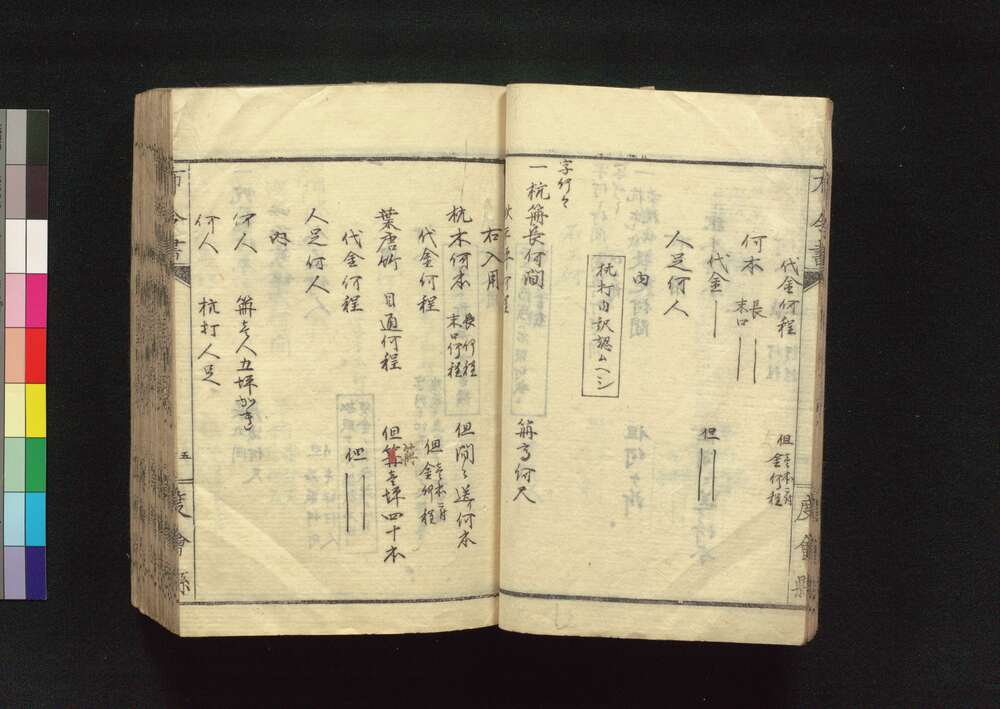 代金何程 但壱本ニ付金何程
何木 長 末口
代金 但
人足何人
内
杭打内訳認ムヘシ
字何々
一杭𥱋長何間 𥱋高何尺
右入用
杭木何本 長何程 末口何程 但間ニ送リ何本
代金何程 但壱本ニ付金何程
葉唐竹 目通何程 但𥱋壱坪四十本
代金何程 但
人足何人
内
何人 𥱋壱人五坪かき
何人 杭打人足
五
度會縣
度會縣